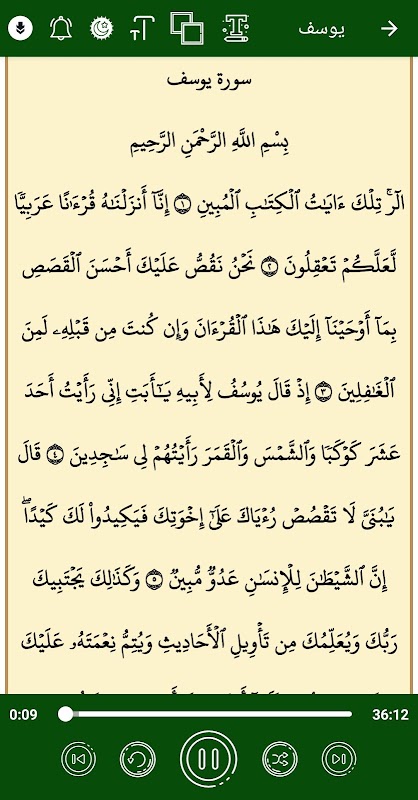 يوسف
سورة يوسف
بِسْمِ اللَّهِ الرَّحْمَنِ الرَّحِيمِ
الٓرۚ تِلْكَ ءَايَٰتُ ٱلْكِتَٰبِ ٱلْمُبِينِ ١ إِنَّآ أَنزَلْنَٰهُ قُرْءَٰنًا عَرَبِيًّا
لَّعَلَّكُمْ تَعْقِلُونَ ٢ نَحْنُ نَقُصُّ عَلَيْكَ أَحْسَنَ ٱلْقَصَصِ
بِمَآ أَوْحَيْنَآ إِلَيْكَ هَٰذَا ٱلْقُرْءَانَ وَإِن كُنتَ مِن قَبْلِهِۦ لَمِنَ
ٱلْغَٰفِلِينَ ٣ إِذْ قَالَ يُوسُفُ لِأَبِيهِ يَٰٓأَبَتِ إِنِّي رَأَيْتُ أَحَدَ
عَشَرَ كَوْكَبًا وَٱلشَّمْسَ وَٱلْقَمَرَ رَأَيْتُهُمْ لِي سَٰجِدِينَ ٤ قَالَ
يَٰبُنَيَّ لَا تَقْصُصْ رُءْيَاكَ عَلَىٰٓ إِخْوَتِكَ فَيَكِيدُوا۟ لَكَ كَيْدًاۖ
إِنَّ ٱلشَّيْطَٰنَ لِلْإِنسَٰنِ عَدُوٌّ مُّبِينٌ ٥ وَكَذَٰلِكَ يَجْتَبِيكَ
رَبُّكَ وَيُعَلِّمُكَ مِن تَأْوِيلِ ٱلْأَحَادِيثِ وَيُتِمُّ نِعْمَتَهُۥ عَلَيْكَ
0:09 36:12